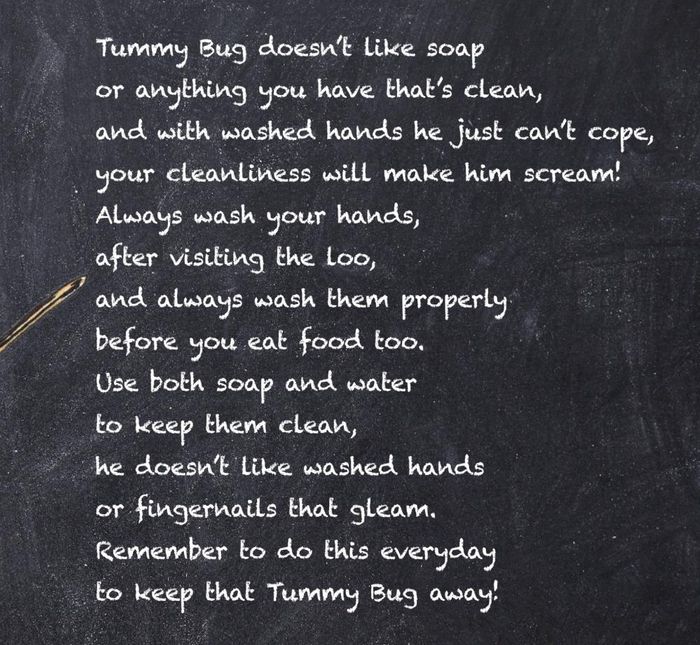 Tummy Bug doesn't like soap
or anything you have that's clean,
and with washed hands he just can't cope,
your cleanliness will make him scream!
Always wash your hands,
after visiting the loo,
and always wash them properly
before you eat food too.
Use both soap and water
to keep them clean,
he doesn't like washed hands
or fingernails that gleam.
Remember to do this everyday
to keep that Tummy Bug away!